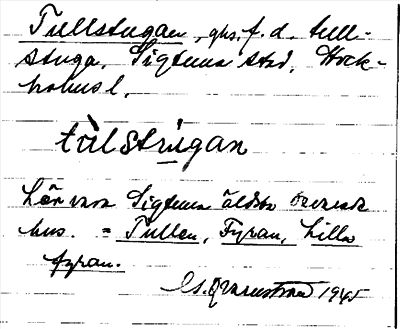 Tullstugan, ghs. f. d. tull-
stuga. Sigtuna stad, Stock-
holms l.
tùlstṳ́gan
Lär vara Sigtuna äldsta
hus. = Tullen, Fyran, Lilla
fyran.
1945